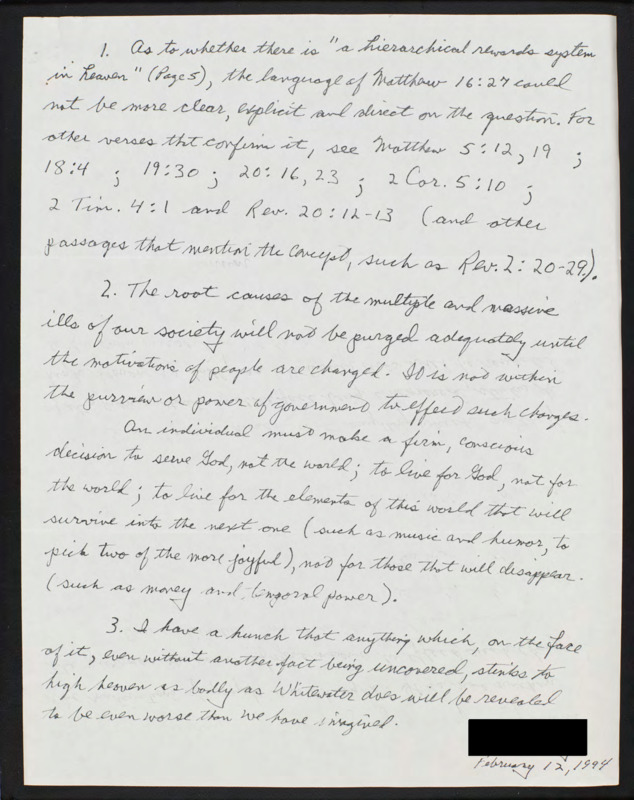 1. As to whether there is "a hierarchical rewards system
in heaven" (Page 5), the language of Matthew 16:27 could
not be more clear, explicit and direct on the question. For
other verses tht confirm it, see Matthew 5:12, 19 ;
18:4 ; 19:30 ; 20:16, 23 ; 2 Cor. 5:10 ;
2 Tim. 4:1 and Rev. 20:12-13 (and other
passages that mention the concept, such as Rev. 2:20-29.).
2. The root causes of the multiple and massive
ills of our society will not be purged adequately until
the motivations of people are changed. It is not within
the purview or power of government to effect such changes.
An individual must make a firm, conscious
decision to serve God, not the world; to live for God, not for
the world; to live for the elements of this world that will
survive into the next one (such as music and humor, to
pick two of the more joyful), not for those that will disappear.
(such as money and temporal power).
3. I have a hunch that anything which, on the face
of it, even without another fact being uncovered, stinks to
high heaven as badly as Whitewater does will be revealed
to be even worse than we have imagined.
February 12, 1994